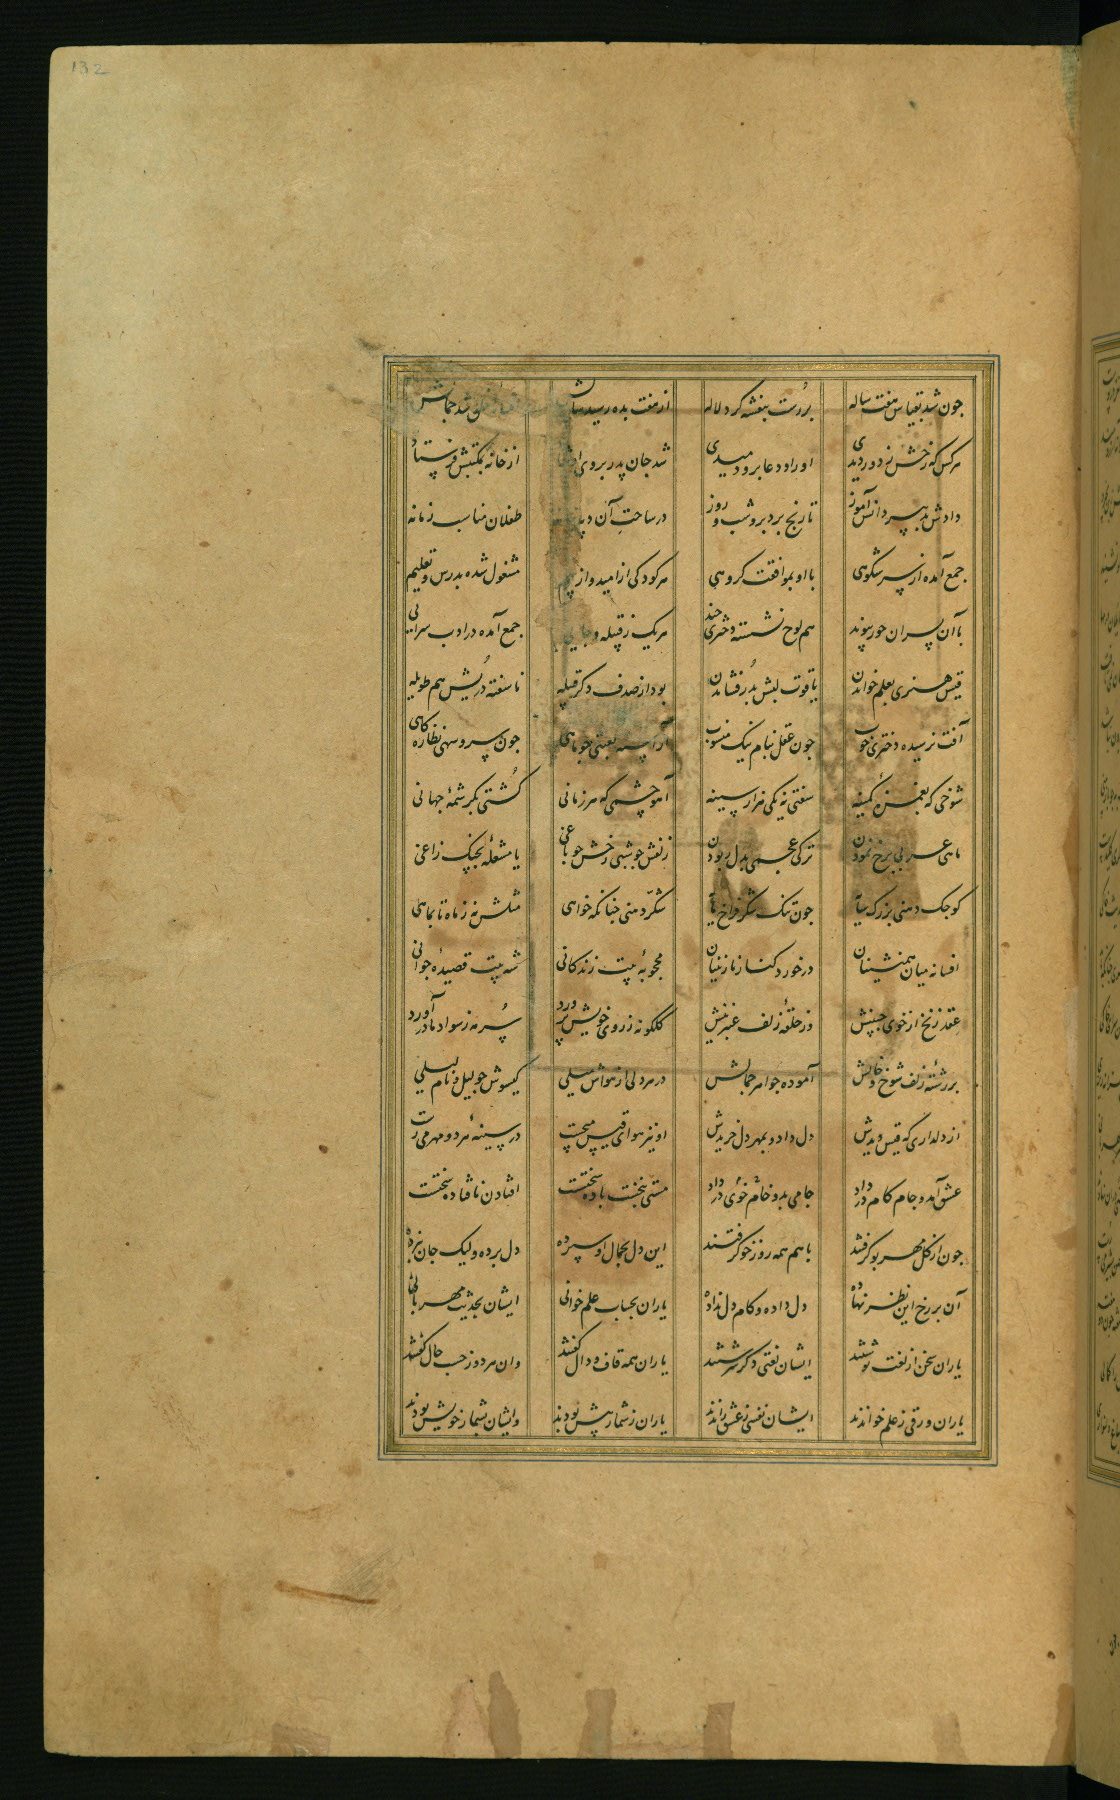 جون شد بقیاس هفت ساله بررست بنفشه کرد لاله از هفت بده رسید سالش شد جمالش
هرکس که رخش ز دور دیدی برو دمیدی شد جان پدر بروی او شاد از خانه بمکتبش فرستاد
دادش بدبیر دانش آموز تا رنج برد برو شب و روز در ساحت آن طفلان مناسب زمانه
جمع آمده از سر شکوهی با او بموافقت کروهی هر کودکی از امید و از بیم مشغول شده بدرس و تعلیم
با آن پسران خورد پیوند هم لوح نشسته دختری چند هر یک ز قبیله و جایی جمع آمده در ادب سرایی
قیس هنری بعلم خواندن یاقوت لبش بدُر فشاندن بود از صدف دکر قبیله ناسفته دُریش هم طویله
آفت نرسیده دختری خوب جون عقل بنام نیک منسوب آراسته لعبتی جو ماهی جون سرو سهی نظاره کاهی
شوخی که بغمزهٔ کمینه سفتی نه یکی هزار سینه آهو چشمی که هر زمانی کُشتی بکرشمهٔ جهانی
ماهی عربی برخ نمودن ترکی عجمی بدل ربودن زلفش جو شبی رخش جو باغی یا مشعلهٔ بچنک زاغی
کوجک دهنی بزرک سایه جون تنک شکر فراخ مایه شکّر دهنی جنانکه خواهی مثلش نه ز ماه تا بماهی
افسانه میان همنشینان در خورد کنار نازنینان محجوبهٔ بیت زندکانی شه بیت قصیدهٔ جوانی
عقد زنخ از خوی جبینش وز حلقهٔ زلف عنبرینش کلکونه ز روی خویش پرورد سُرمه ز سواد مادر آورد
بر رشتهٔ زلف شوخ و خالش آموده جواهر جمالش در هر دلی از هواش میلی کیسوش جو لیل و نام لیلی
از دلداری که قیس دیدش دل داد و بمهر دل خریدش او نیز هوای قیس میجست در سینهٔ هر دو مهر میرست
عشق آمد و جام کام در داد جامی بدو خام خوی در داد مستی بنخست باده سختست افتادن نافتاده سختست
جون از کل مهر بو کرفتند با هم همه روز خو کرفتند این دل بجمال او سپرده دل برده ولیک جان نبرده
آن بر رخ این نظر نهاده دل داده و کام دل نداده یاران بحساب علم خوانی ایشان بحدیث مهربانی
یاران سخن از لغت نوشتند ایشان لغتی دکر سرشتند یاران همه قاف و دال کفتند وان هر دو ز حسب حال کفتند
یاران ورقی ز علم خواندند ایشان نفسی ز عشق راندند یاران ز شمار پیش بودند و ایشان بشمار خویش بودند
132